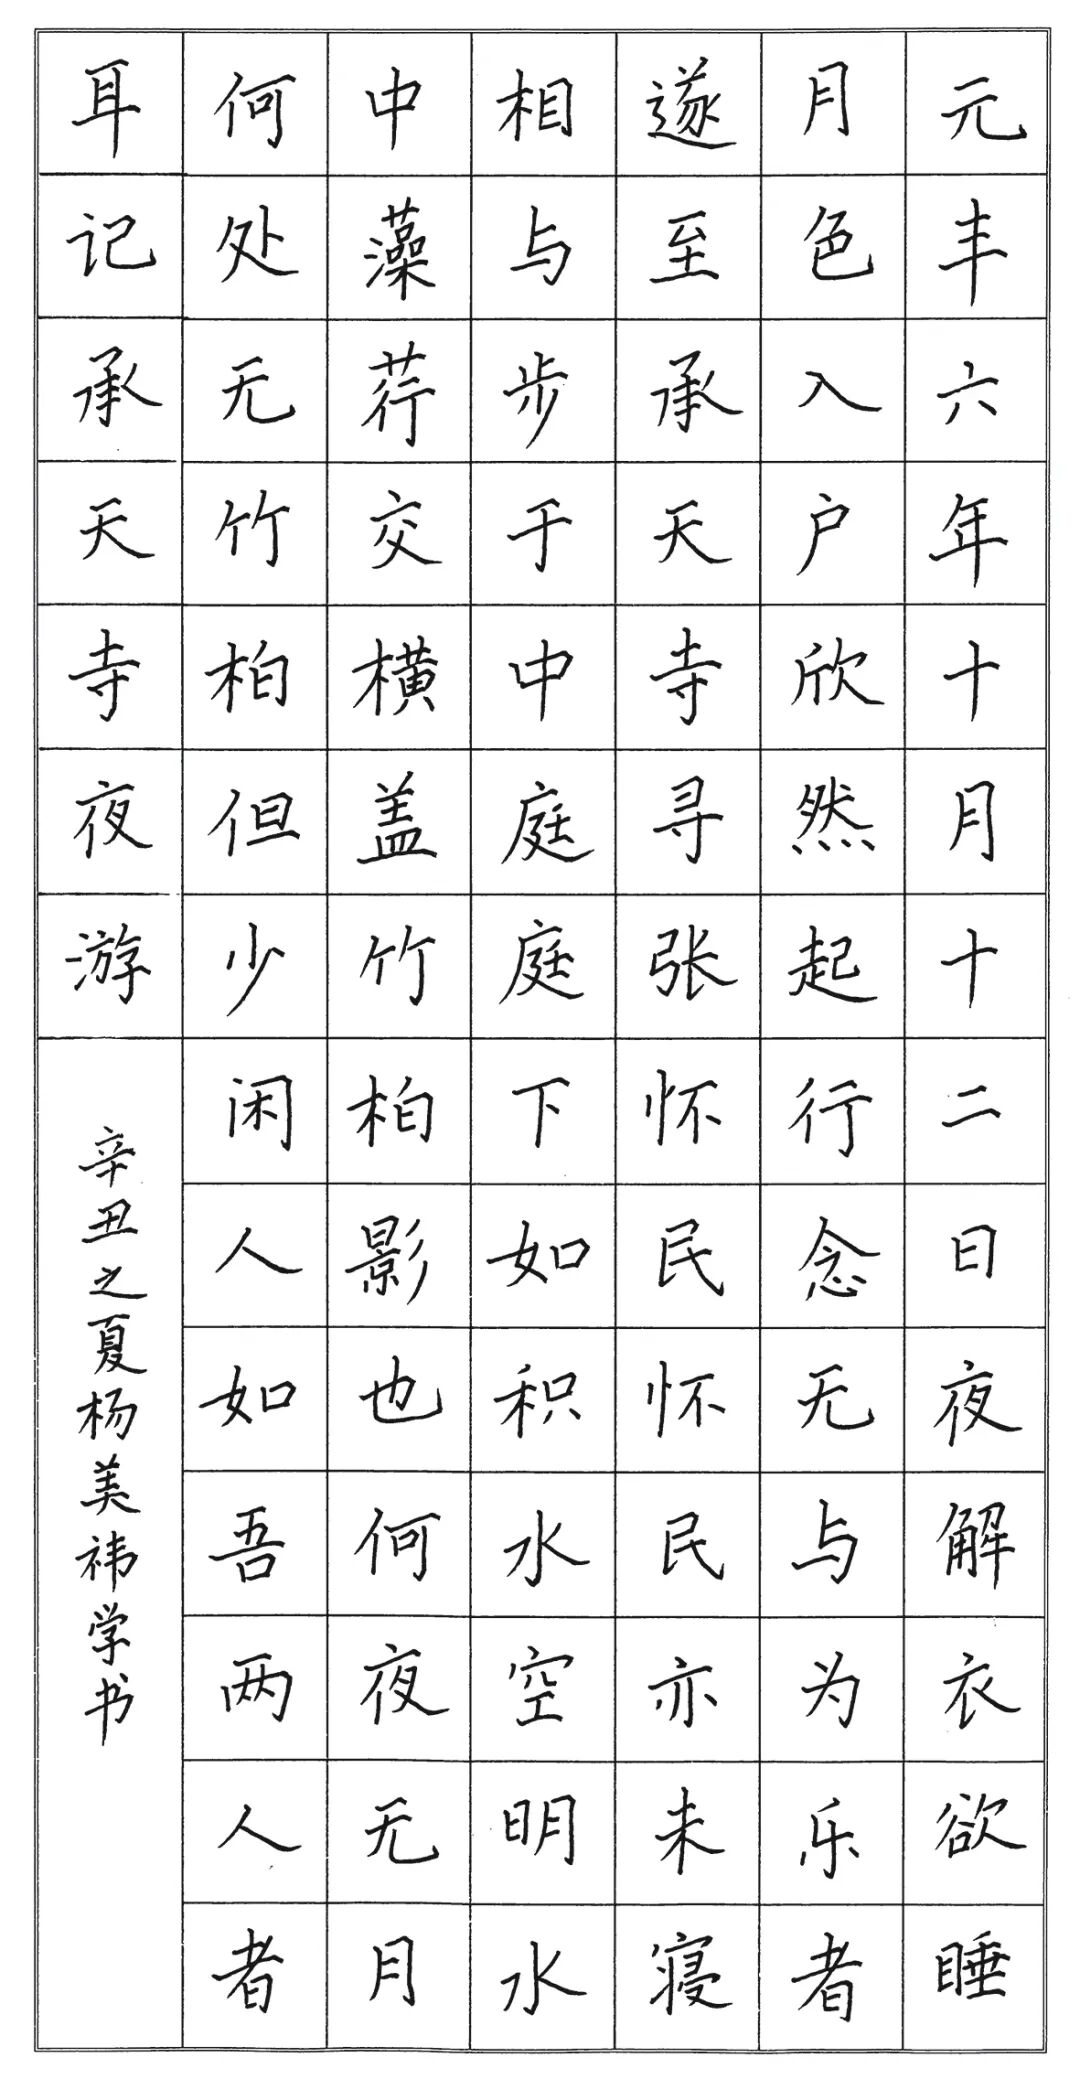 元丰六年十月十二日夜解衣欲睡
月色入户欣然起行念无与为乐者
遂至承天寺寻张怀民怀民亦未寝
相与步于中庭庭下如积水空明水
中藻荇交横盖竹柏影也何夜无月
何处无竹柏但少闲人如吾两人者
耳记承天寺夜游
辛丑之夏杨美祎学书